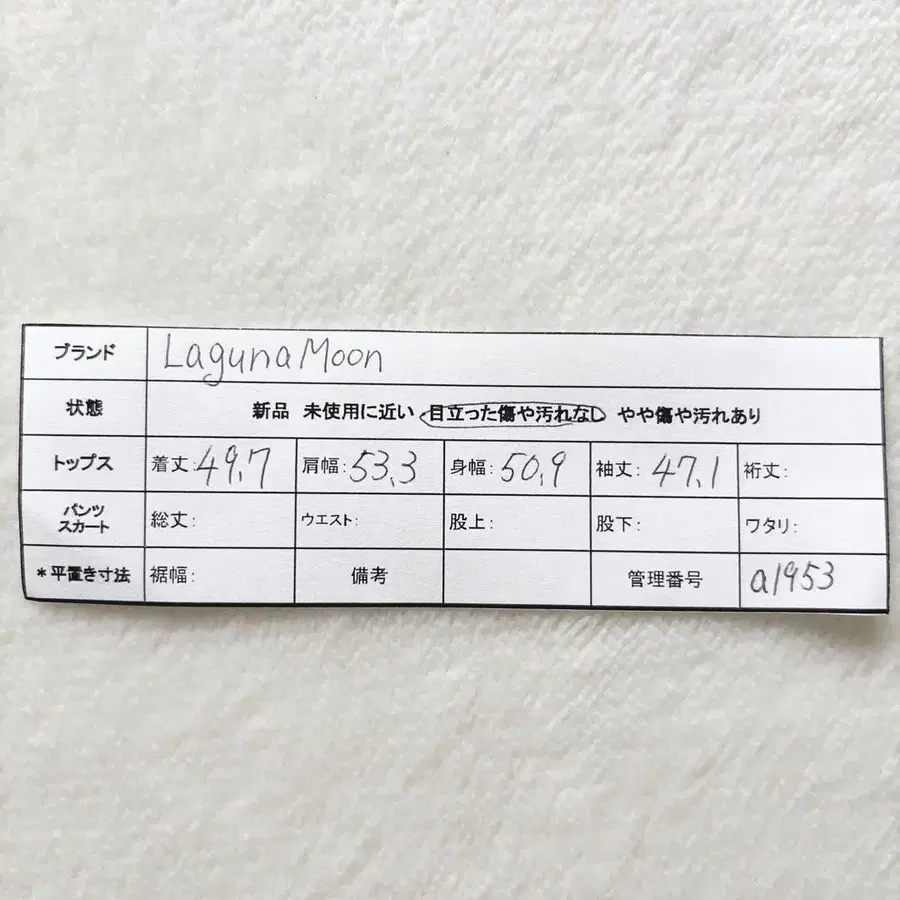 ブランド LagunaMoon
状態 新品 未使用に近い 目立った傷や汚れなし やや傷や汚れあり
トップス 着丈:49.7 肩幅:53.3 身幅:50.9 袖丈:47.1 裄丈:
パンツ
スカート 総丈: ウエスト: 股上: 股下: ワタリ:
*平置き寸法 裾幅: 備考 管理番号 a1953